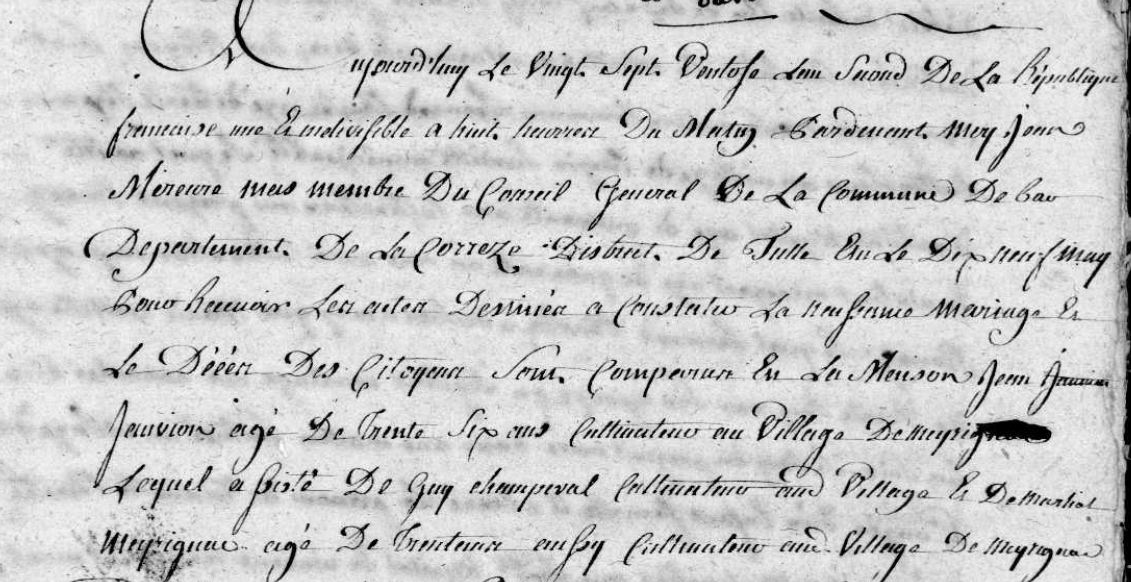 Aujourd'huy Le Vingt Sept Ventose Lan Second De La République
francaise une Et indivisible a huit heures Du Matin Pardevant Moy Jean
membre Du Conseil General De La Commune De
Departement De La Correze District De Tulle Elu Le Dix neuf may
Pour Recevoir Les actes Destinés a Constater La naissance Mariage Et
Le Décés Des Citoyens Sont Comparus En La Maison Jean
Jauvion agé De Trente Six ans Cultivateur au Village De meyrignac
Lequel assisté De Guy champeval Cultivateur aud Village Et De martial
Meyrignac agé De Trente ans aussy Cultivateur aud Village De Meyrignac